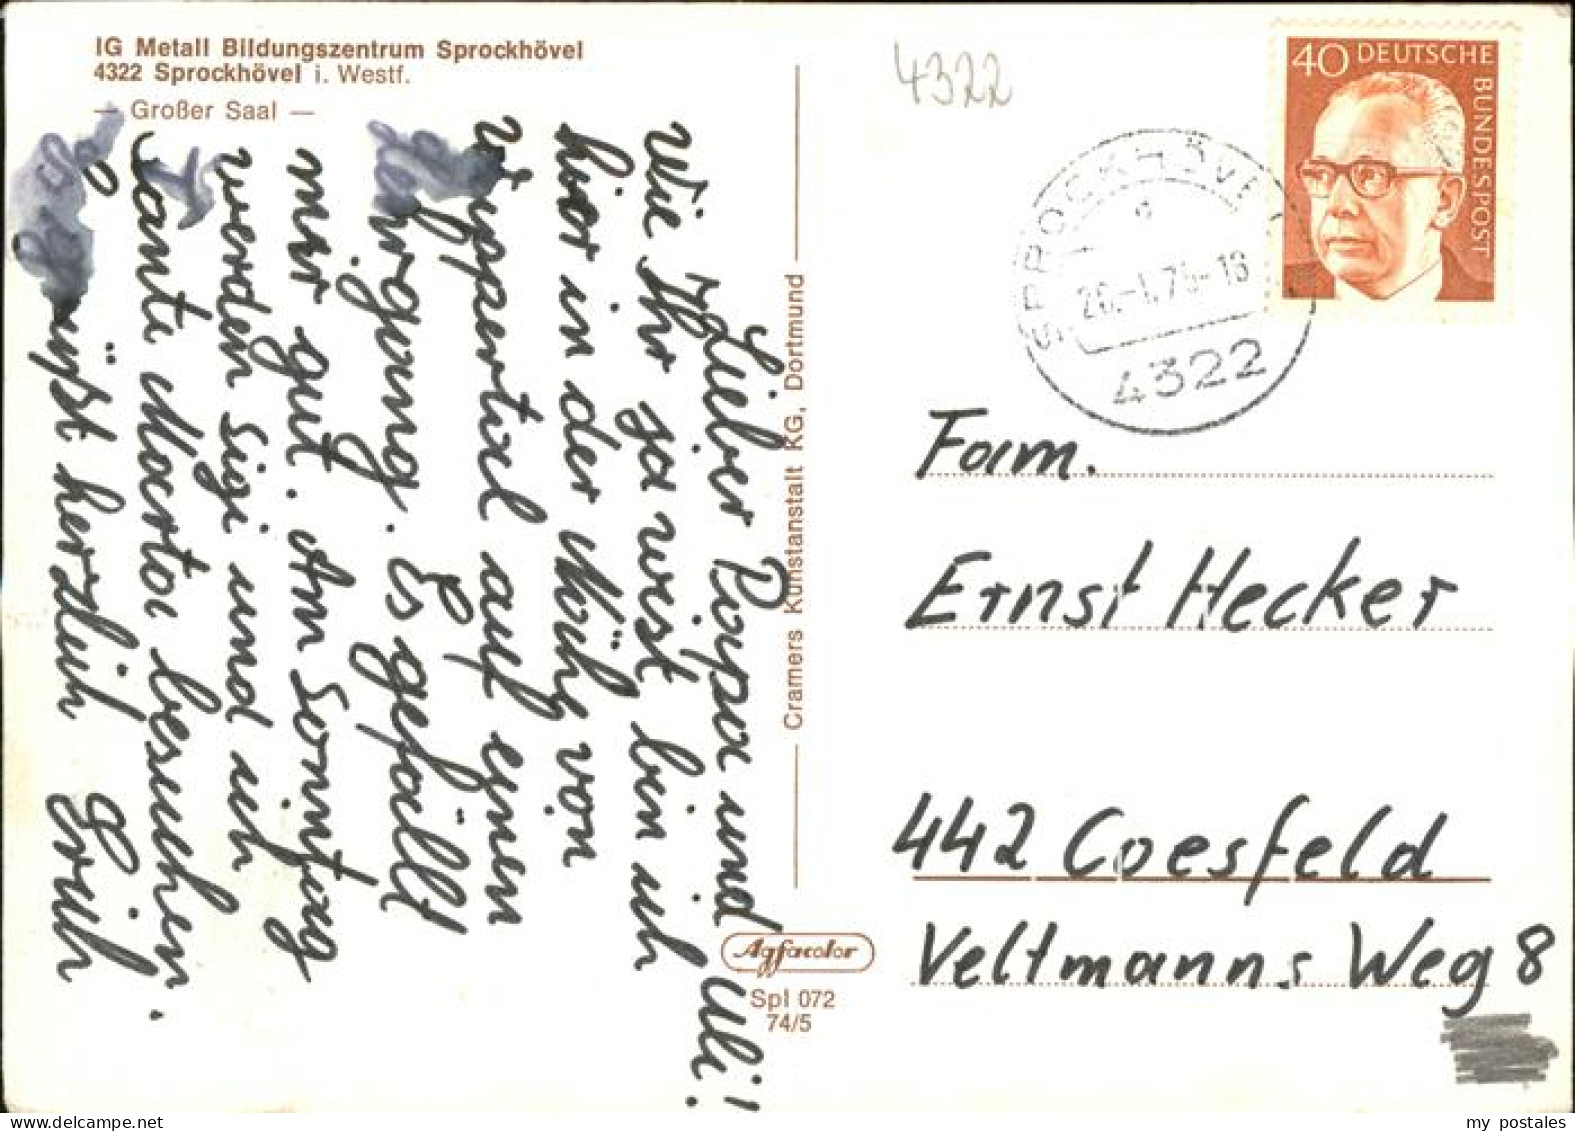 IG Metall Bildungszentrum Sprockhövel
4322 Sprockhövel i. Westf.
— Großer Saal —
Lieber Papa und Uli!
Wie Ihr ja wist bin ich
hier in der Nähe von
Wuppertal auf einen
Lehrgang. Es gefällt
mir gut. Am Sonntag
werden Sigi und ich
Tante Marta besuchen.
Es grüßt herzlich Erich
Cramers Kunstanstalt KG, Dortmund
Agfacolor
Spl 072
74/5
4322
40 DEUTSCHE
BUNDESPOST
SPROCKHÖVEL 1
20.-1.75-18
4322
Fam.
Ernst Hecker
442 Coesfeld
Veltmanns Weg 8
my postales